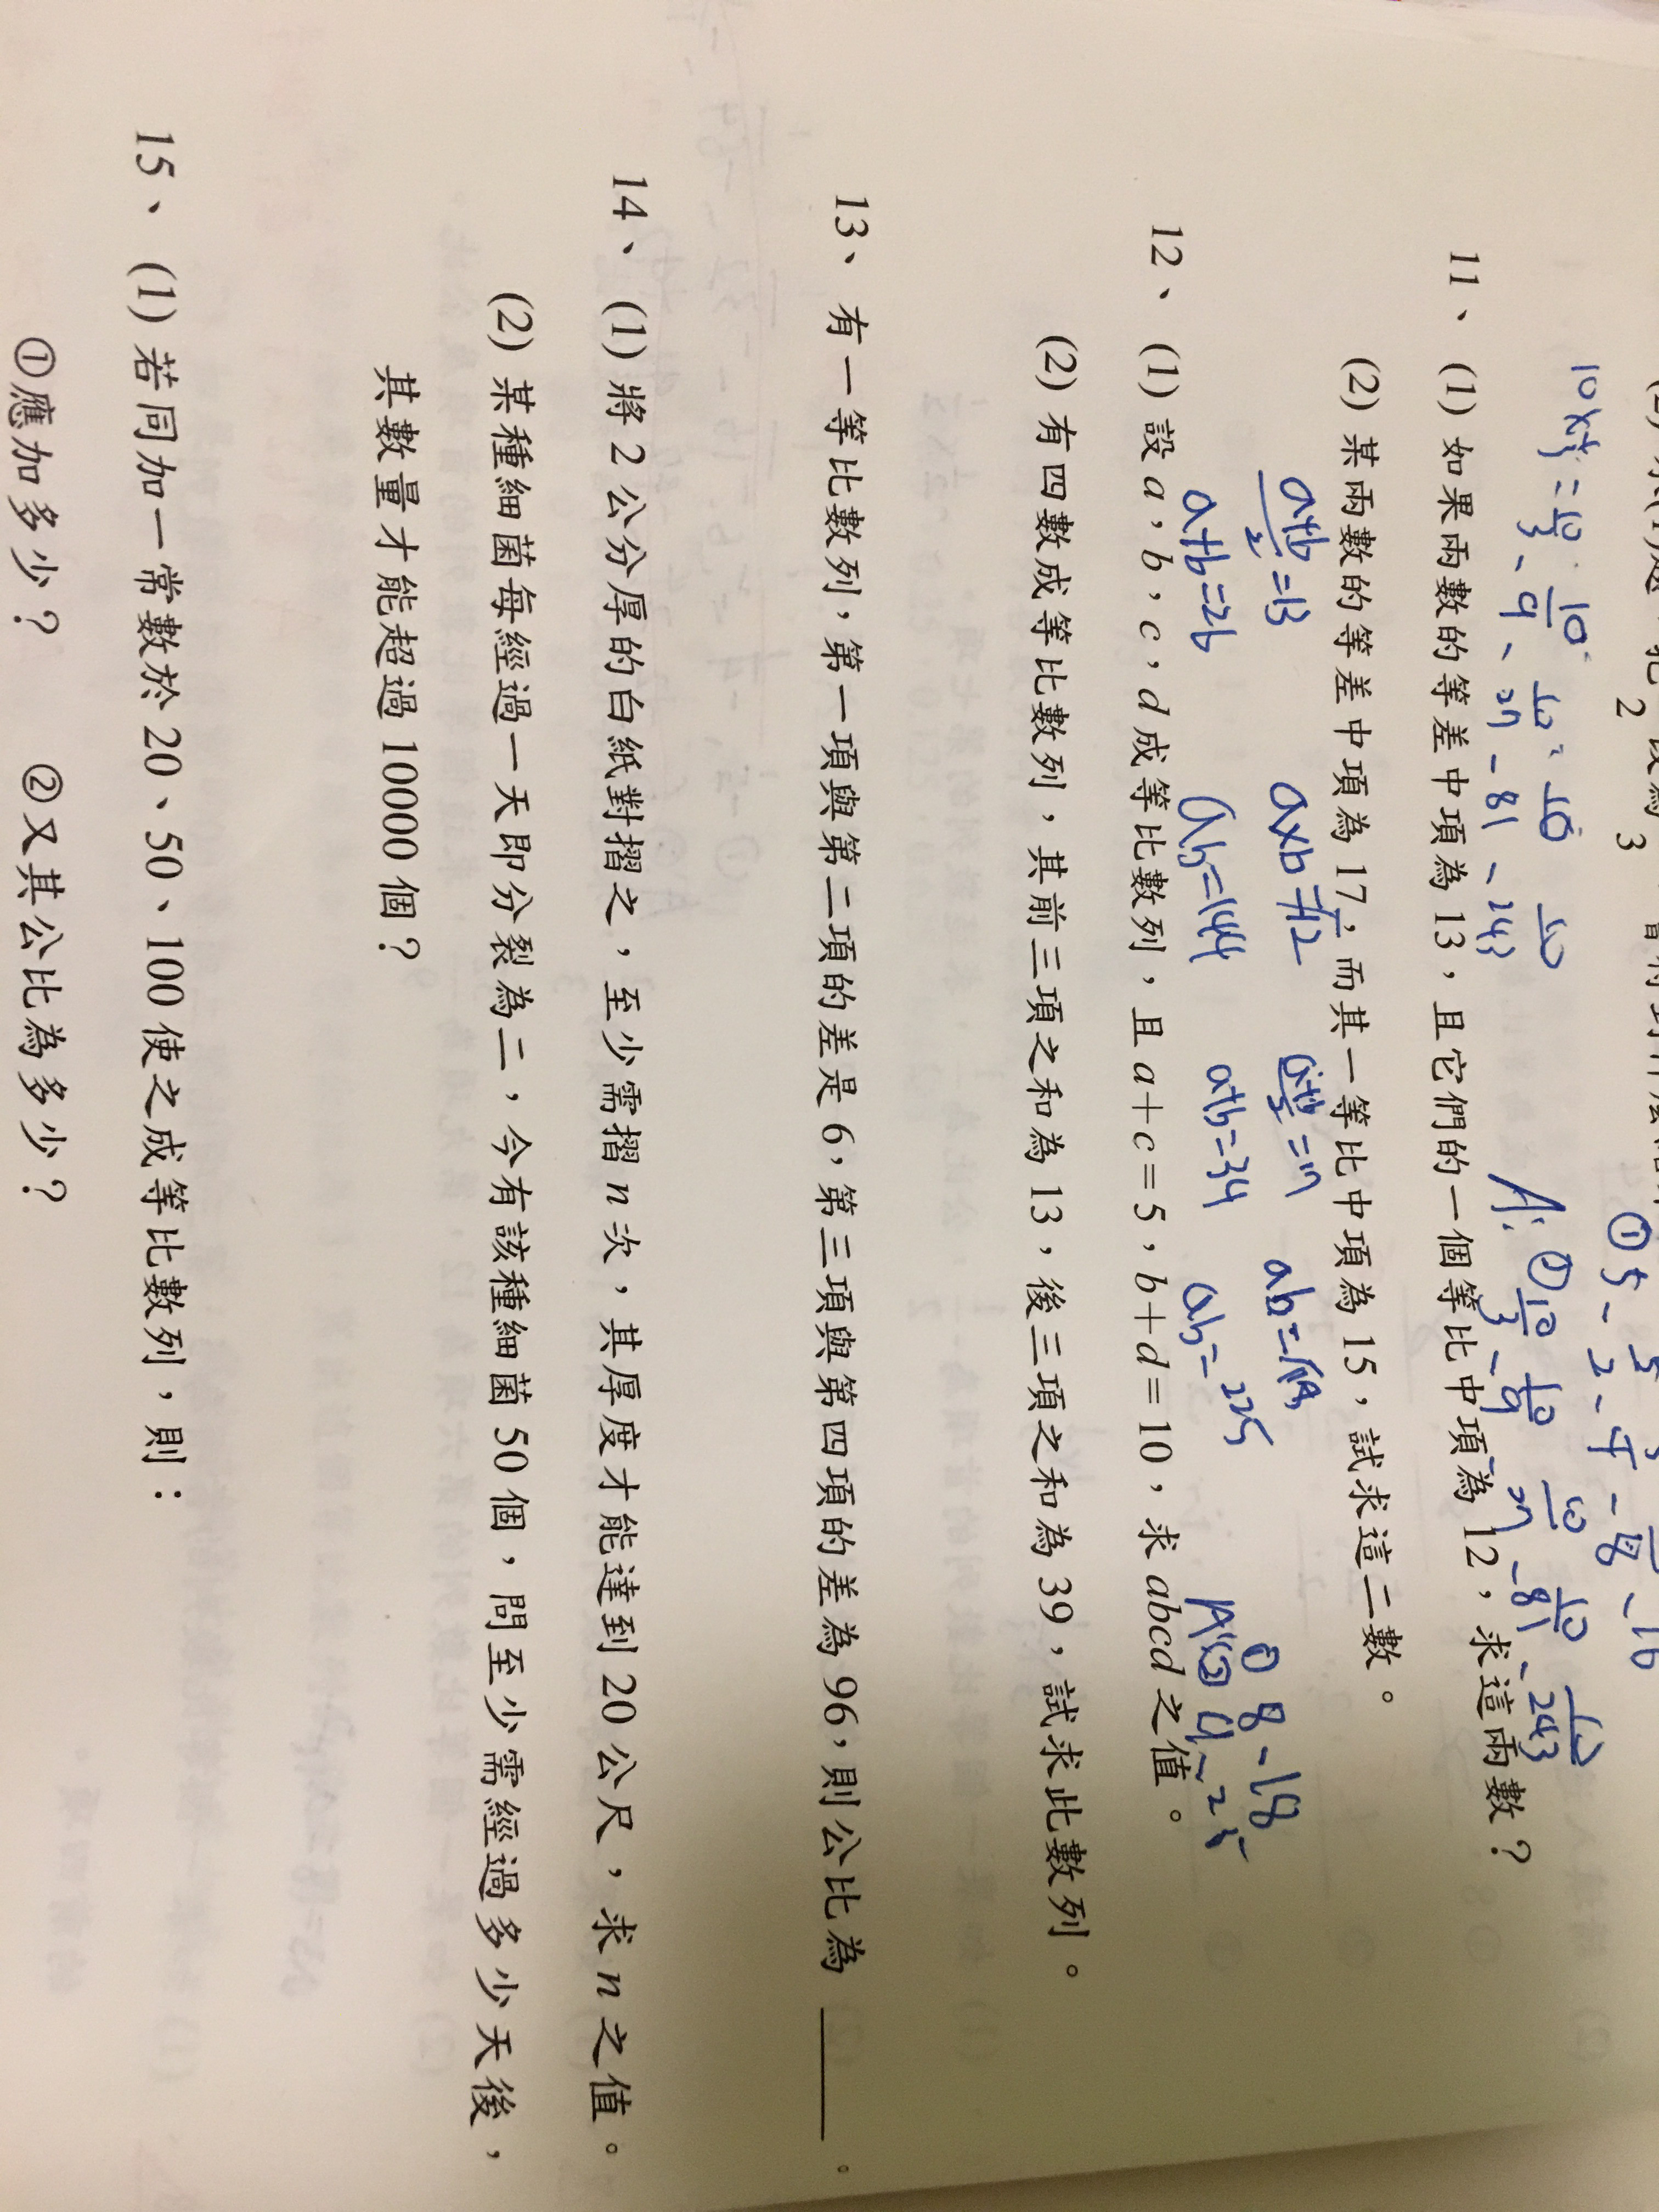 2 3
① 5、5/2、5/4、5/8、
10×1/3=10/3、10/9、10/27、10/81、10/243
A:②10/3、10/9、10/27、10/81、10/243
11、(1) 如果兩數的等差中項為 13，且它們的一個等比中項為 12，求這兩數？
(2) 某兩數的等差中項為 17，而其一等比中項為 15，試求這二數。
a+b/2=13 a×b=12 a+b/2=17 ab=15 ① 8、18
a+b=26 ab=144 a+b=34 ab=225 A:② 9、25
12、(1) 設 a，b，c，d 成等比數列，且 a＋c＝5，b＋d＝10，求 abcd 之值。
(2) 有四數成等比數列，其前三項之和為 13，後三項之和為 39，試求此數列。
13、有一等比數列，第一項與第二項的差是 6，第三項與第四項的差為 96，則公比為 ＿＿＿。
14、(1) 將 2 公分厚的白紙對摺之，至少需摺 n 次，其厚度才能達到 20 公尺，求 n 之值。
(2) 某種細菌每經過一天即分裂為二，今有該種細菌 50 個，問至少需經過多少天後，
其數量才能超過 10000 個？
15、(1) 若同加一常數於 20、50、100 使之成等比數列，則：
①應加多少？ ②又其公比為多少？